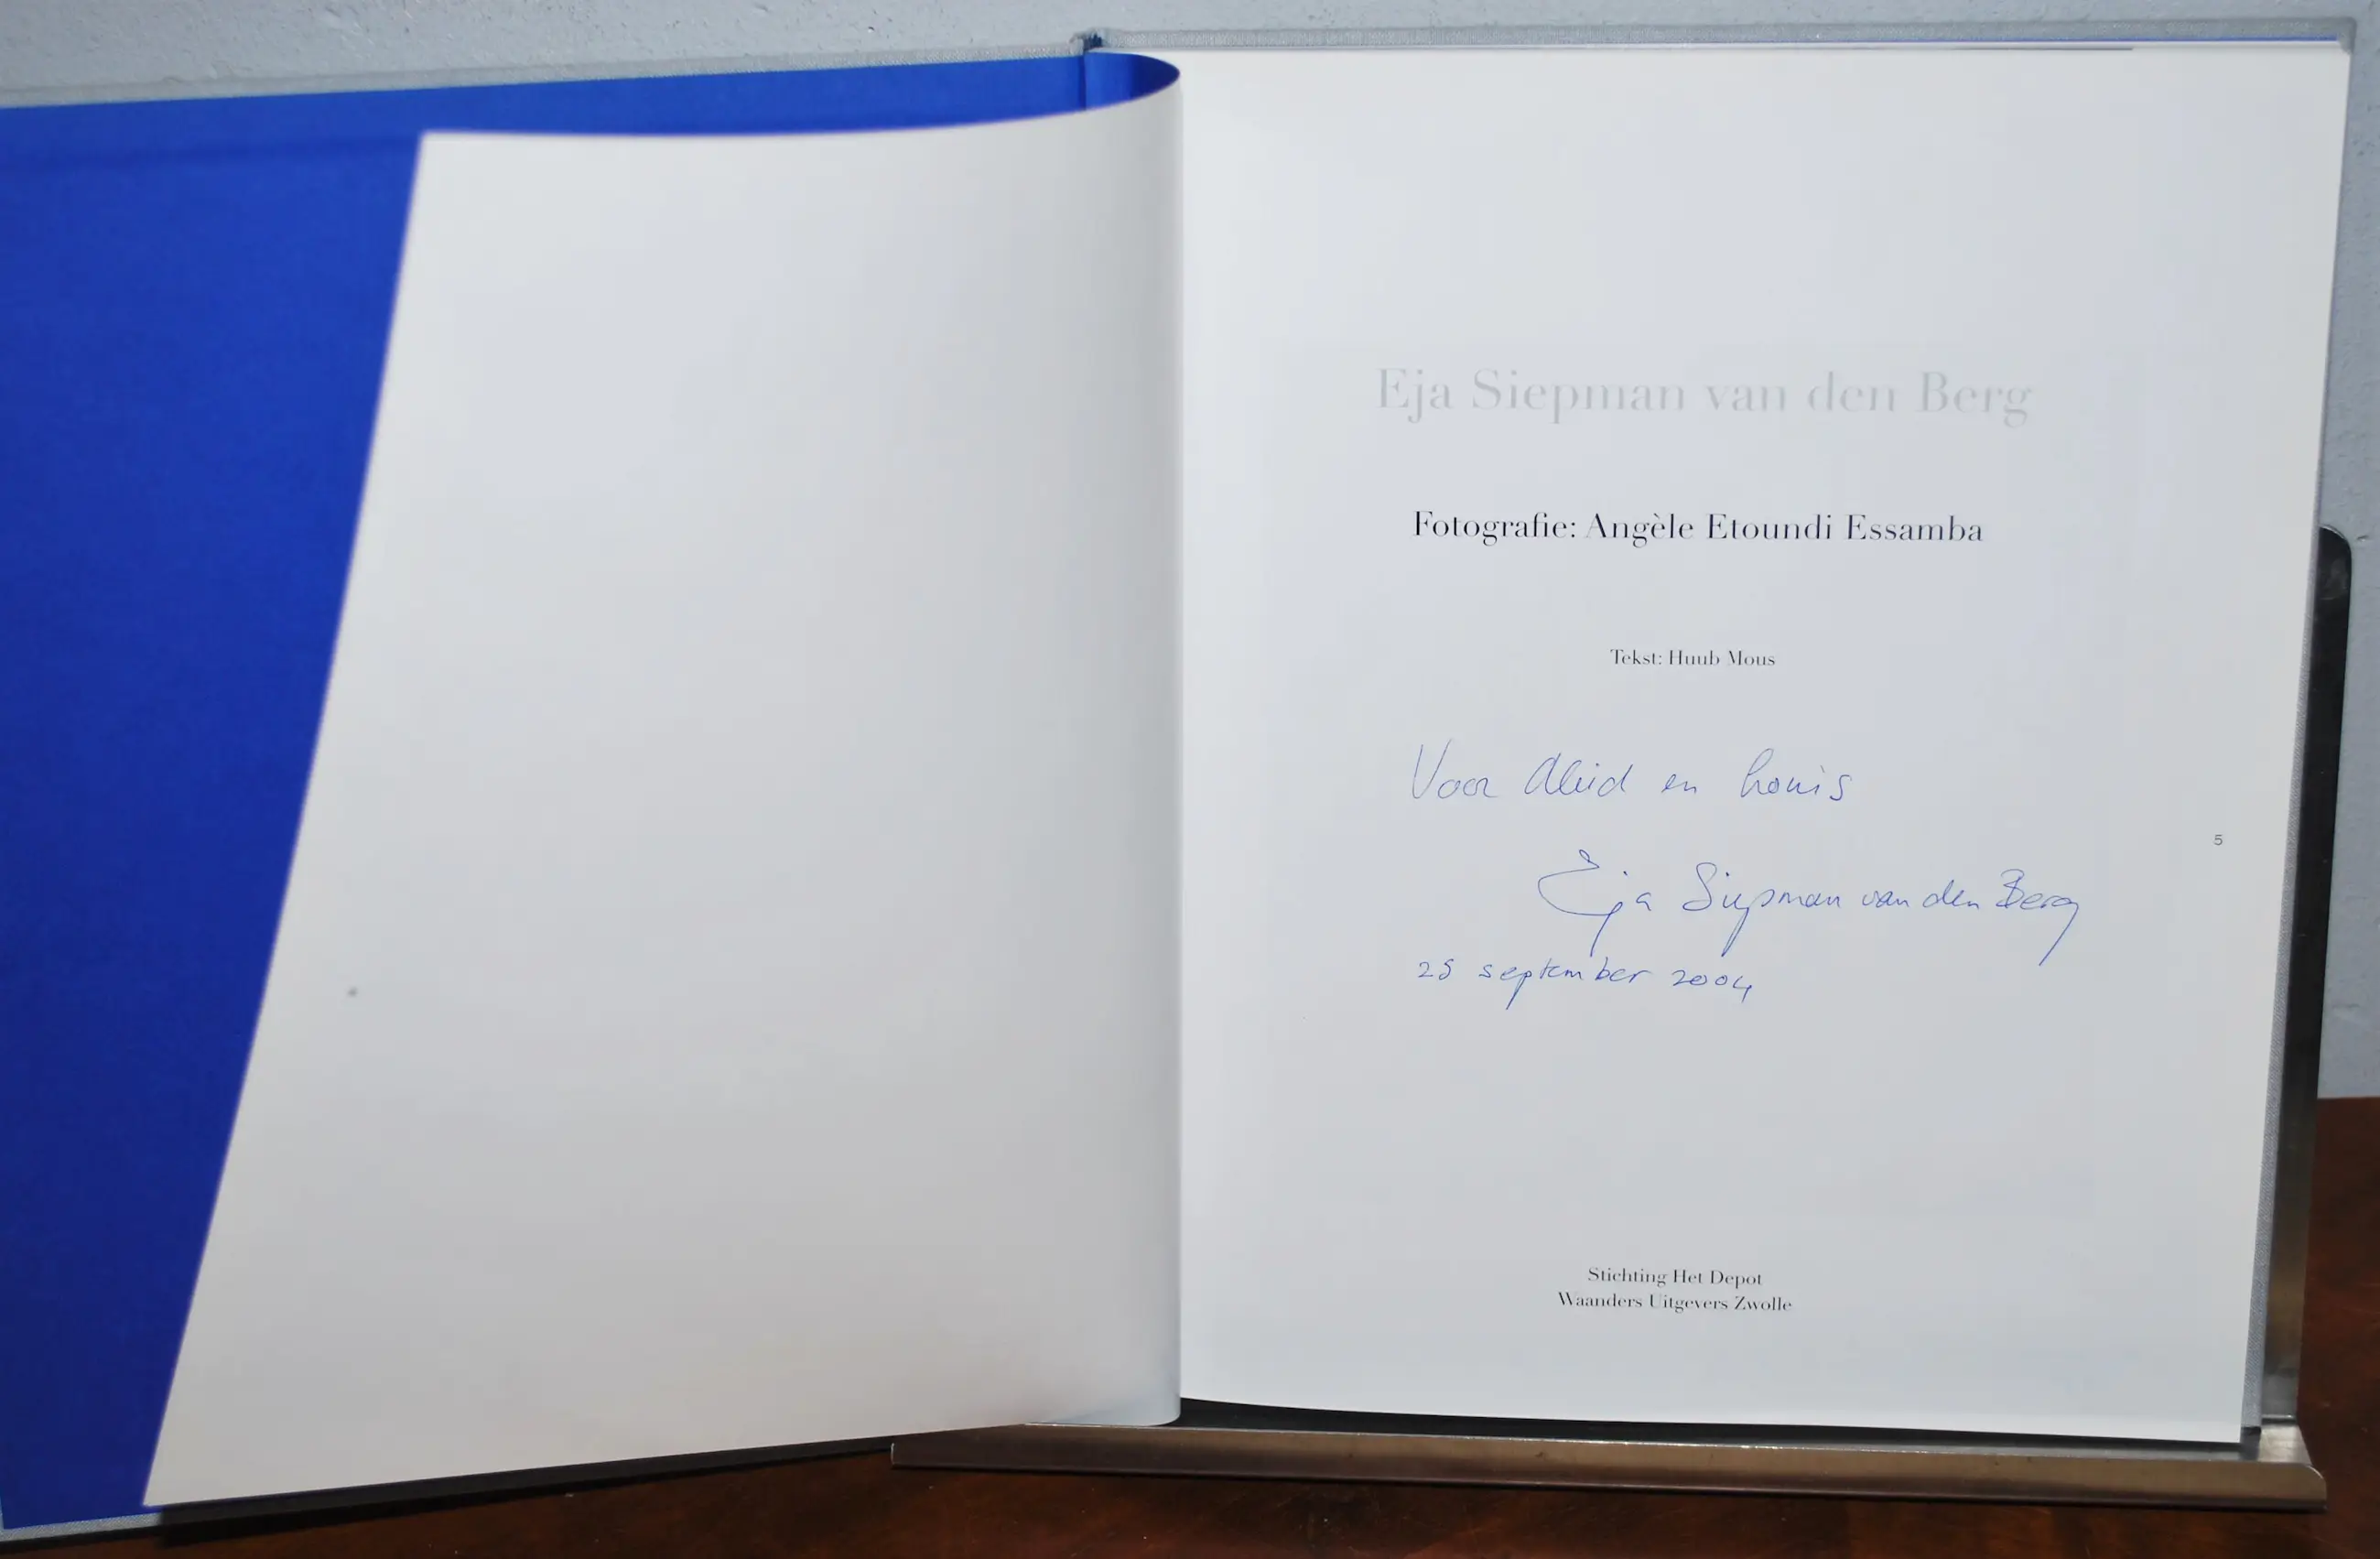 Eja Siepman van den Berg
Fotografie: Angèle Etoundi Essamba
Tekst: Huub Mous
Voor Aleid en Louis
5
Eja Siepman van den Berg
25 september 2004
Stichting Het Depot
Waanders Uitgevers Zwolle